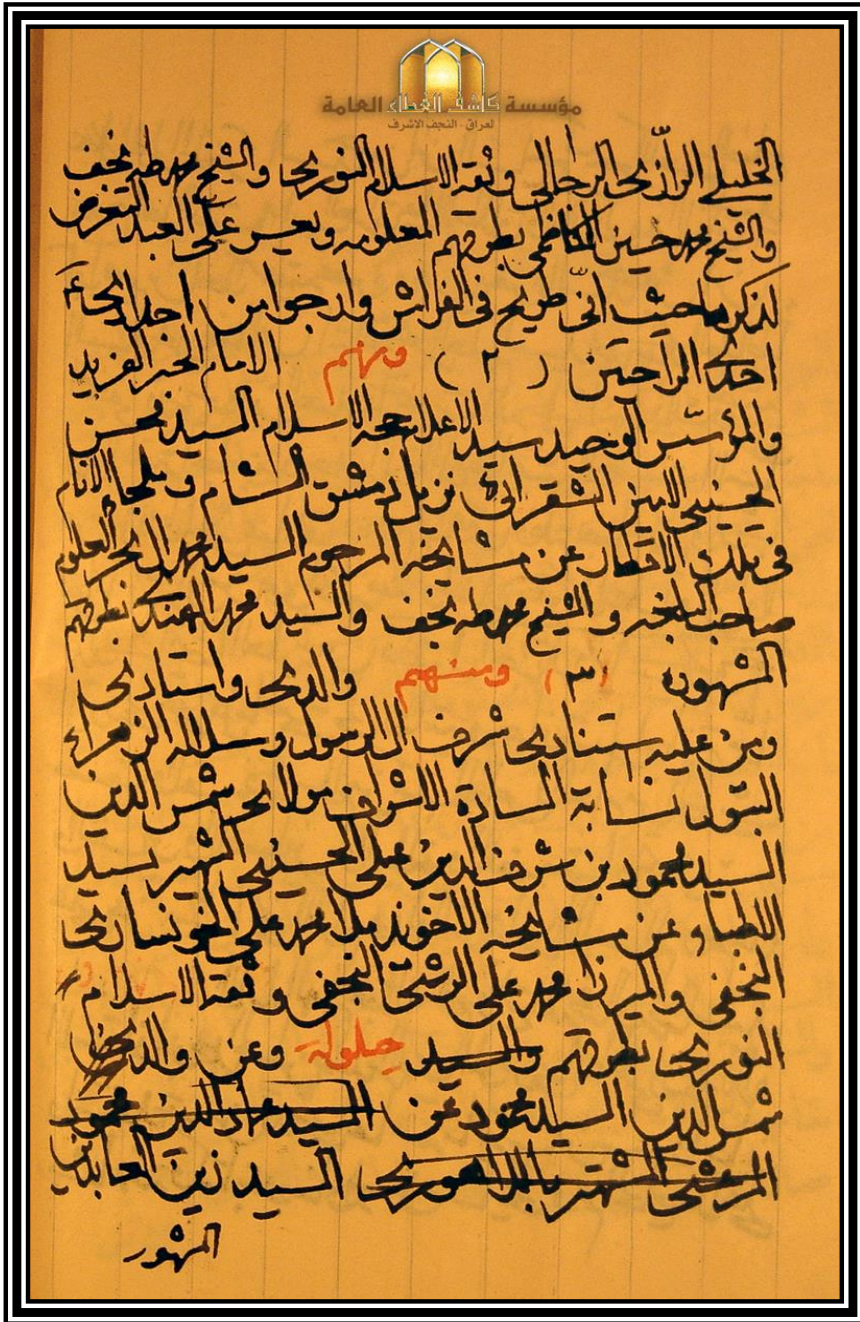 مؤسسة كاشف الغطاء العامة
العراق - النجف الاشرف
الخليلي الرازي الرجالي وثقة الاسلام النوري والشيخ محمد طه نجف
والشيخ محمد حسين الكاظمي بطرقهم المعلومه ويعسر علّي العبد التعرض
لذكرها حيث انّي طريح في الفراش وارجو من احدى
احدى الراحتين (٢) ومنهم الامام الحبر الفريد
والمؤسّس الوحيد سيد الاعلام حجة الاسلام السيد محسن
الحسيني الامين الشقرائي نزيل دمشق الشام وملجاء الانام
في تلك الاقطار عن مشايخه المرحوم السيد محمد ال بحر العلوم
صاحب البلغه والشيخ محمد طه نجف والسيد محمد الهندي بطرقهم
المشهوره (٣) ومنهم والدي واستادي
ومن عليه استنادي شرف ال الرسول وسلالة الزهراء
البتول نسابة السادة الاشراف مولاي شمس الدين
السيد محمود بن شرف الدين علي الحسيني الشهير بسيد
الاطباء عن مشايخه الاخوند ملا محمد علي الخونساري
النجفي والميرزا محمد علي الرشتي النجفي وثقة الاسلام
النوري بطرقهم والسيد حيلولة وعن والدي
شمس الدين السيد محمود عن السيد عماد الدين محمود
المرعشي المشتهر السيد زين العابدين
المشهور